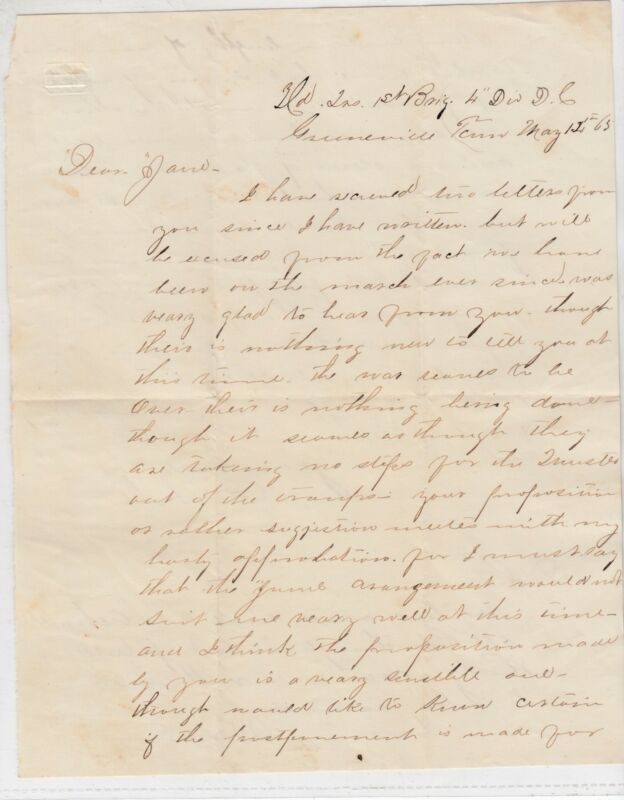 Hd. Qrs. 1st Brig. 4" Div D. C
Greuneville Tenn May 12th 65
"Dear. "Jane-
I have receved two letters from
you since I have written. but will
be excused from the fact we have
been on the march ever since, was
veary glad to hear from you. though
their is nothing new to tell you at
this time. the war seames to be
over their is nothing being done-
though it seames as though they
are taking no steps for the Muster
out of the troops- your proposition
or rather suggestion meetes with my
harty approbation. for I must say
that the "June arangement would not
suit me veary well at this time-
and I think the proposition made
by you is a veary sensible one-
though would like to know certain
if the postponement is made for